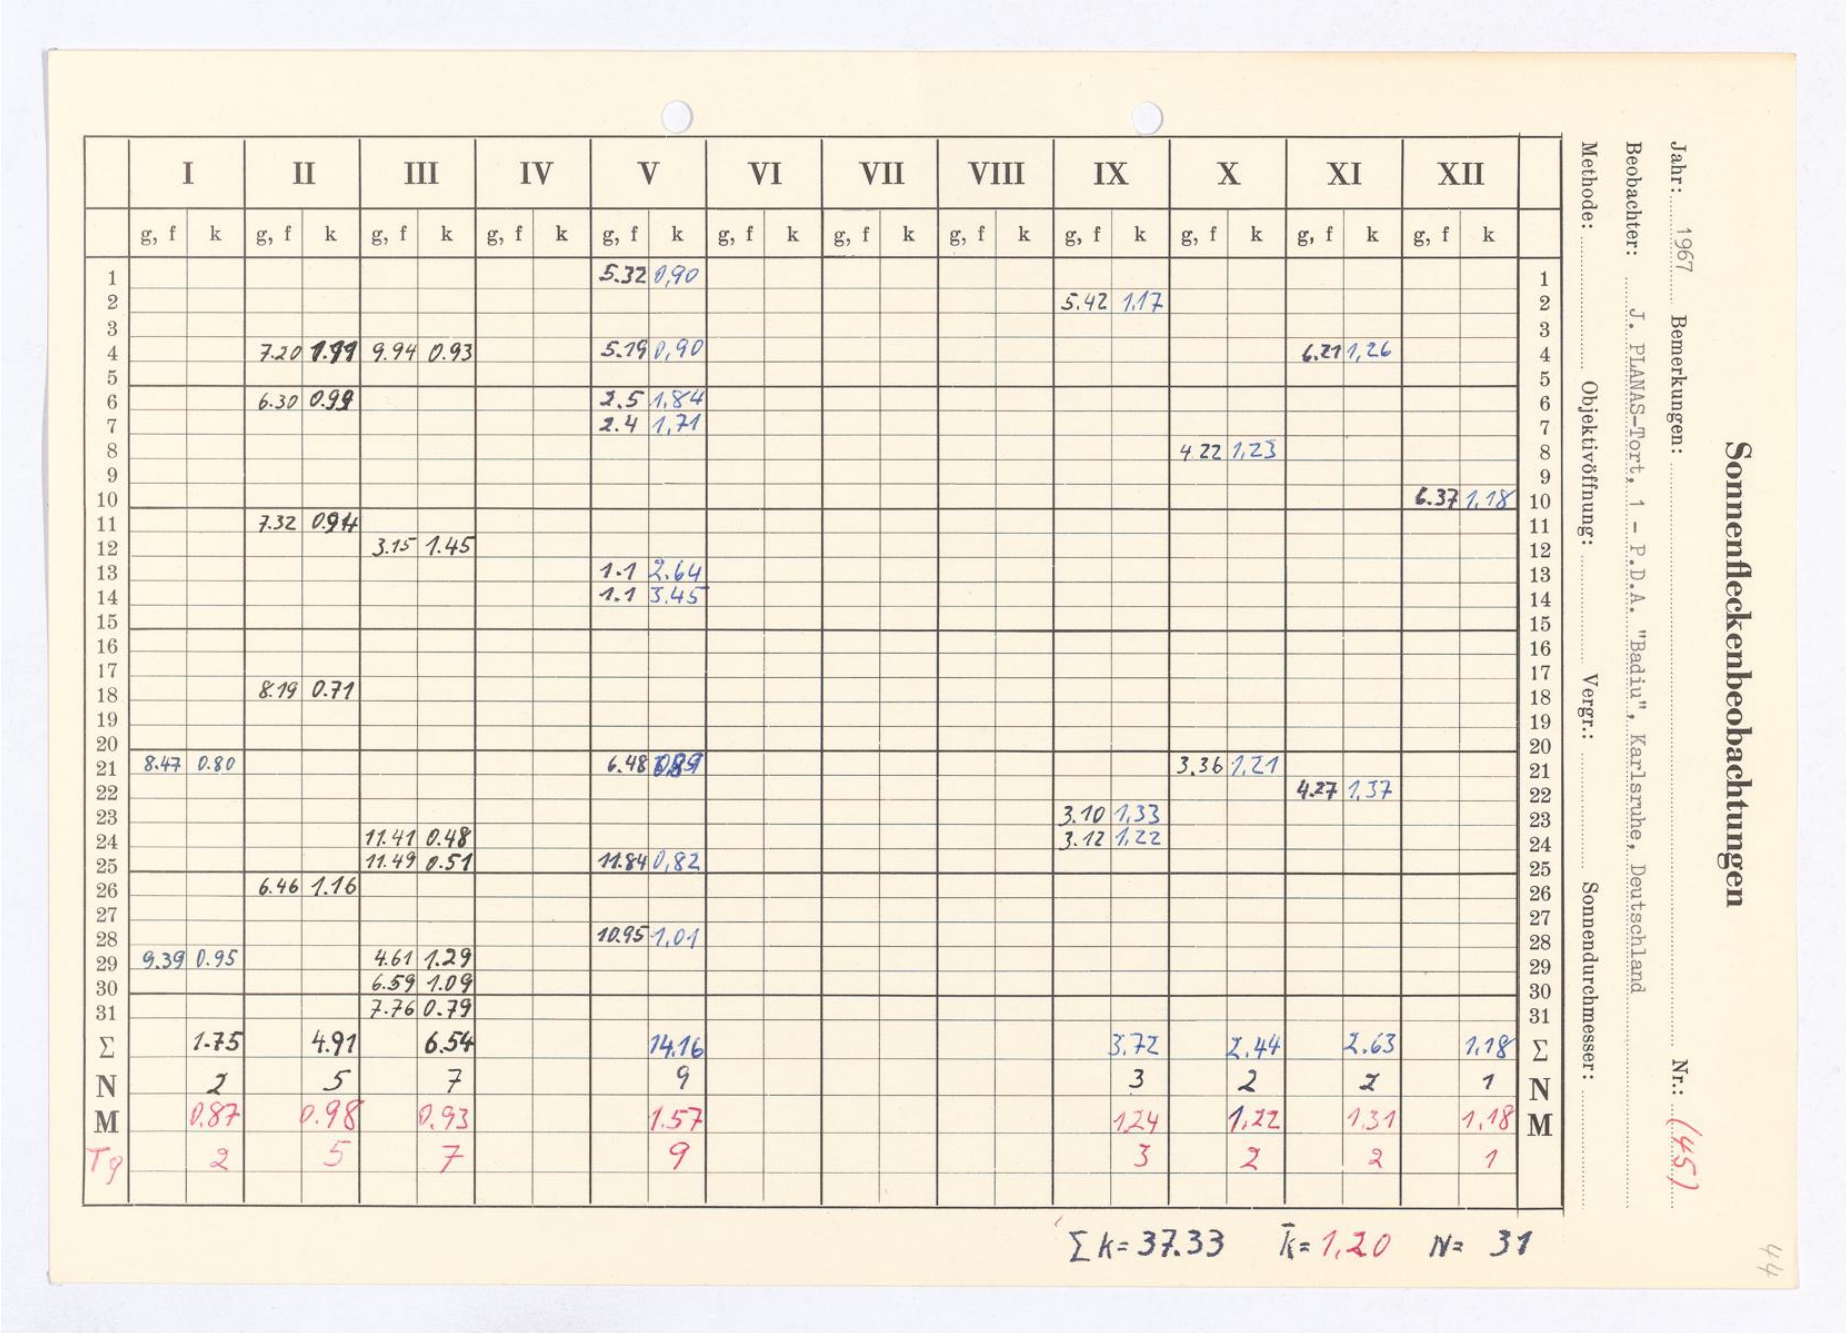 Sonnenfleckenbeobachtungen
Jahr: 1967 Bemerkungen: Nr.: (45)
Beobachter: J. PLANAS-Tort, 1 - P.D.A. "Badiu", Karlsruhe, Deutschland
Methode: Objektivöffnung: Vergr.: Sonnendurchmesser:
I II III IV V VI VII VIII IX X XI XII
g, f k g, f k g, f k g, f k g, f k g, f k g, f k g, f k g, f k g, f k g, f k g, f k
1 5.32 0,90 1
2 5.42 1,17 2
3 3
4 7.20 1.11 9.94 0.93 5.19 0,90 6.21 1,26 4
5 5
6 6.30 0.99 2.5 1,84 6
7 2.4 1,71 7
8 4.22 1,23 8
9 9
10 6.37 1,18 10
11 7.32 0.94 11
12 3.15 1.45 12
13 1.1 2.64 13
14 1.1 3.45 14
15 15
16 16
17 17
18 8.19 0.71 18
19 19
20 20
21 8.47 0.80 6.48 0,89 3.36 1,21 21
22 4.27 1,37 22
23 3.10 1,33 23
24 11.41 0.48 3.12 1,22 24
25 11.49 0.51 11.84 0,82 25
26 6.46 1.16 26
27 27
28 10.95 1,01 28
29 9.39 0.95 4.61 1.29 29
30 6.59 1.09 30
31 7.76 0.79 31
Σ 1.75 4.91 6.54 14.16 3.72 2.44 2.63 1.18 Σ
N 2 5 7 9 3 2 2 1 N
M 0.87 0.98 0.93 1.57 1.24 1,22 1.31 1,18 M
Tg 2 5 7 9 3 2 2 1
Σ k = 37.33 k̄ = 1,20 N = 31
44